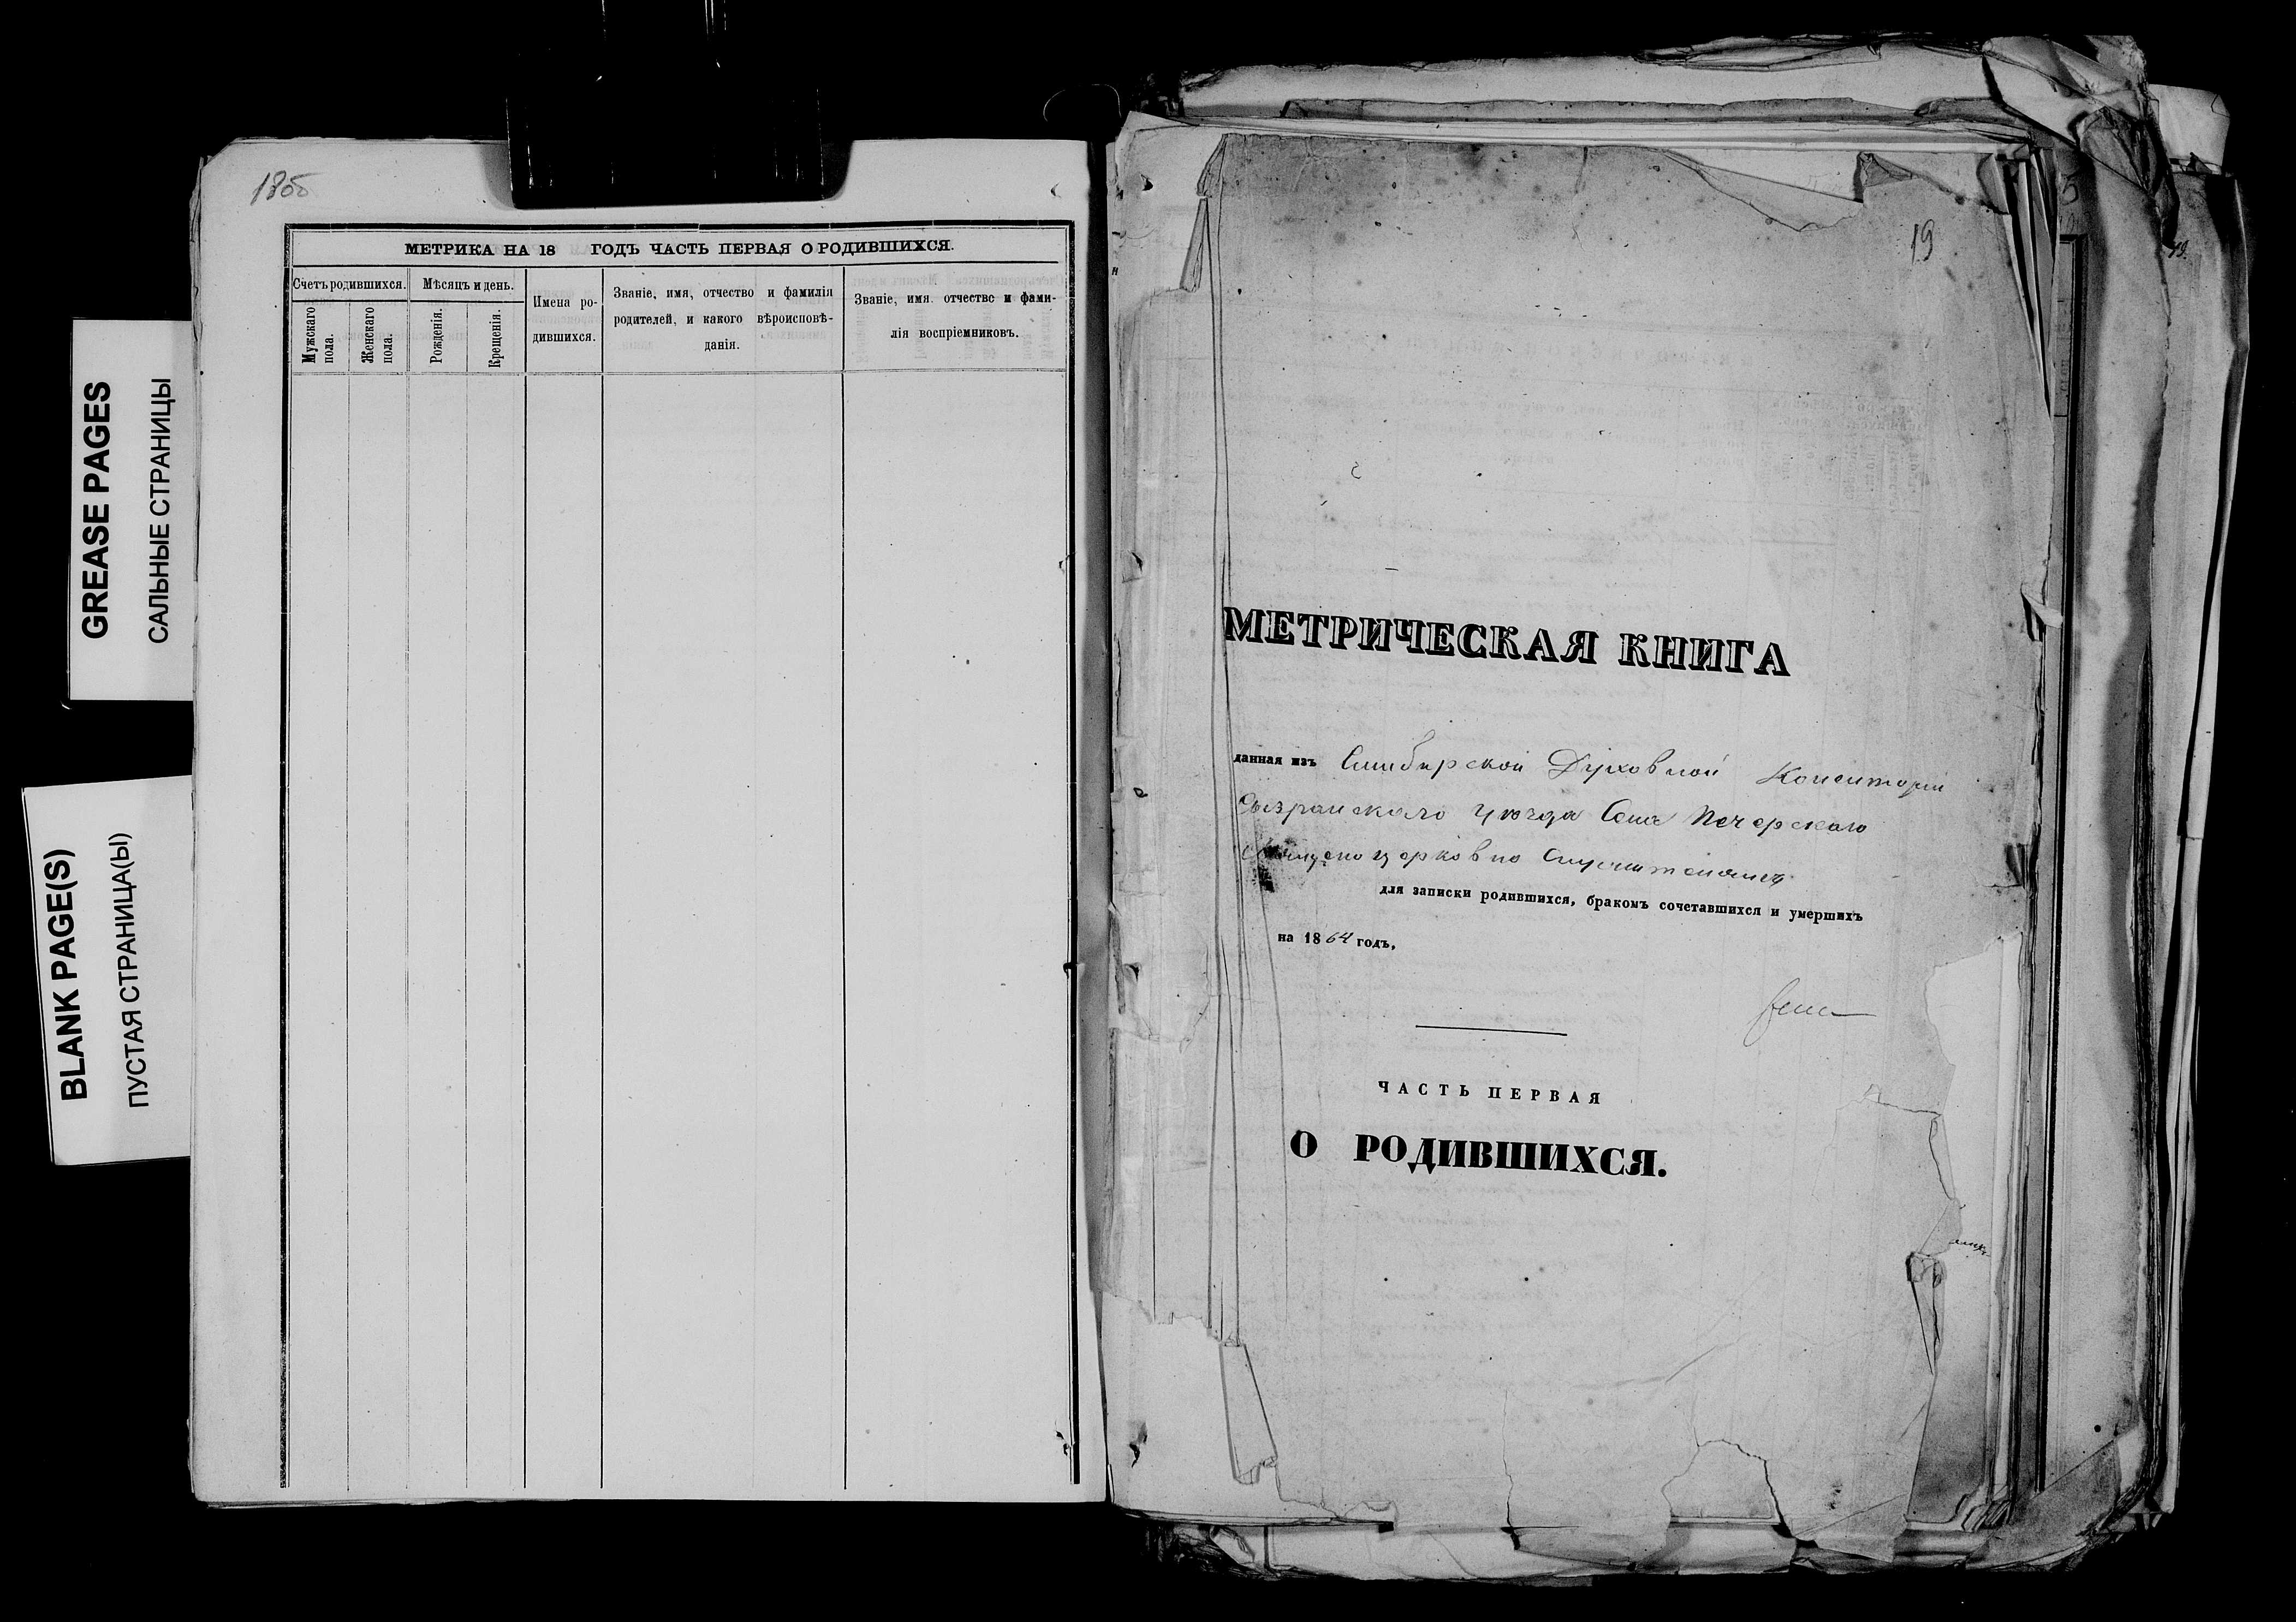 1805
МЕТРИКА НА 18 ГОДЪ ЧАСТЬ ПЕРВАЯ О РОДИВШИХСЯ.
Счетъ родившихся.
Мужскаго пола.
Женскаго пола.
Мѣсяцъ и день.
Рожденія.
Крещенія.
Имена ро-
дившихся.
Званіе, имя, отчество и фамилія
родителей, и какого вѣроисповѣ-
данія.
Званіе, имя отчество и фами-
лія воспріемниковъ.
GREASE PAGES
САЛЬНЫЕ СТРАНИЦЫ
BLANK PAGE(S)
ПУСТАЯ СТРАНИЦА(Ы)
19
МЕТРИЧЕСКАЯ КНИГА
данная изъ Симбирской Духовной Консисторіи
Сызранскаго уѣзда Села Печерскаго
Священноцерковно служителямъ
для записки родившихся, бракомъ сочетавшихся и умершихъ
на 1864 годъ.
ЧАСТЬ ПЕРВАЯ
О РОДИВШИХСЯ.